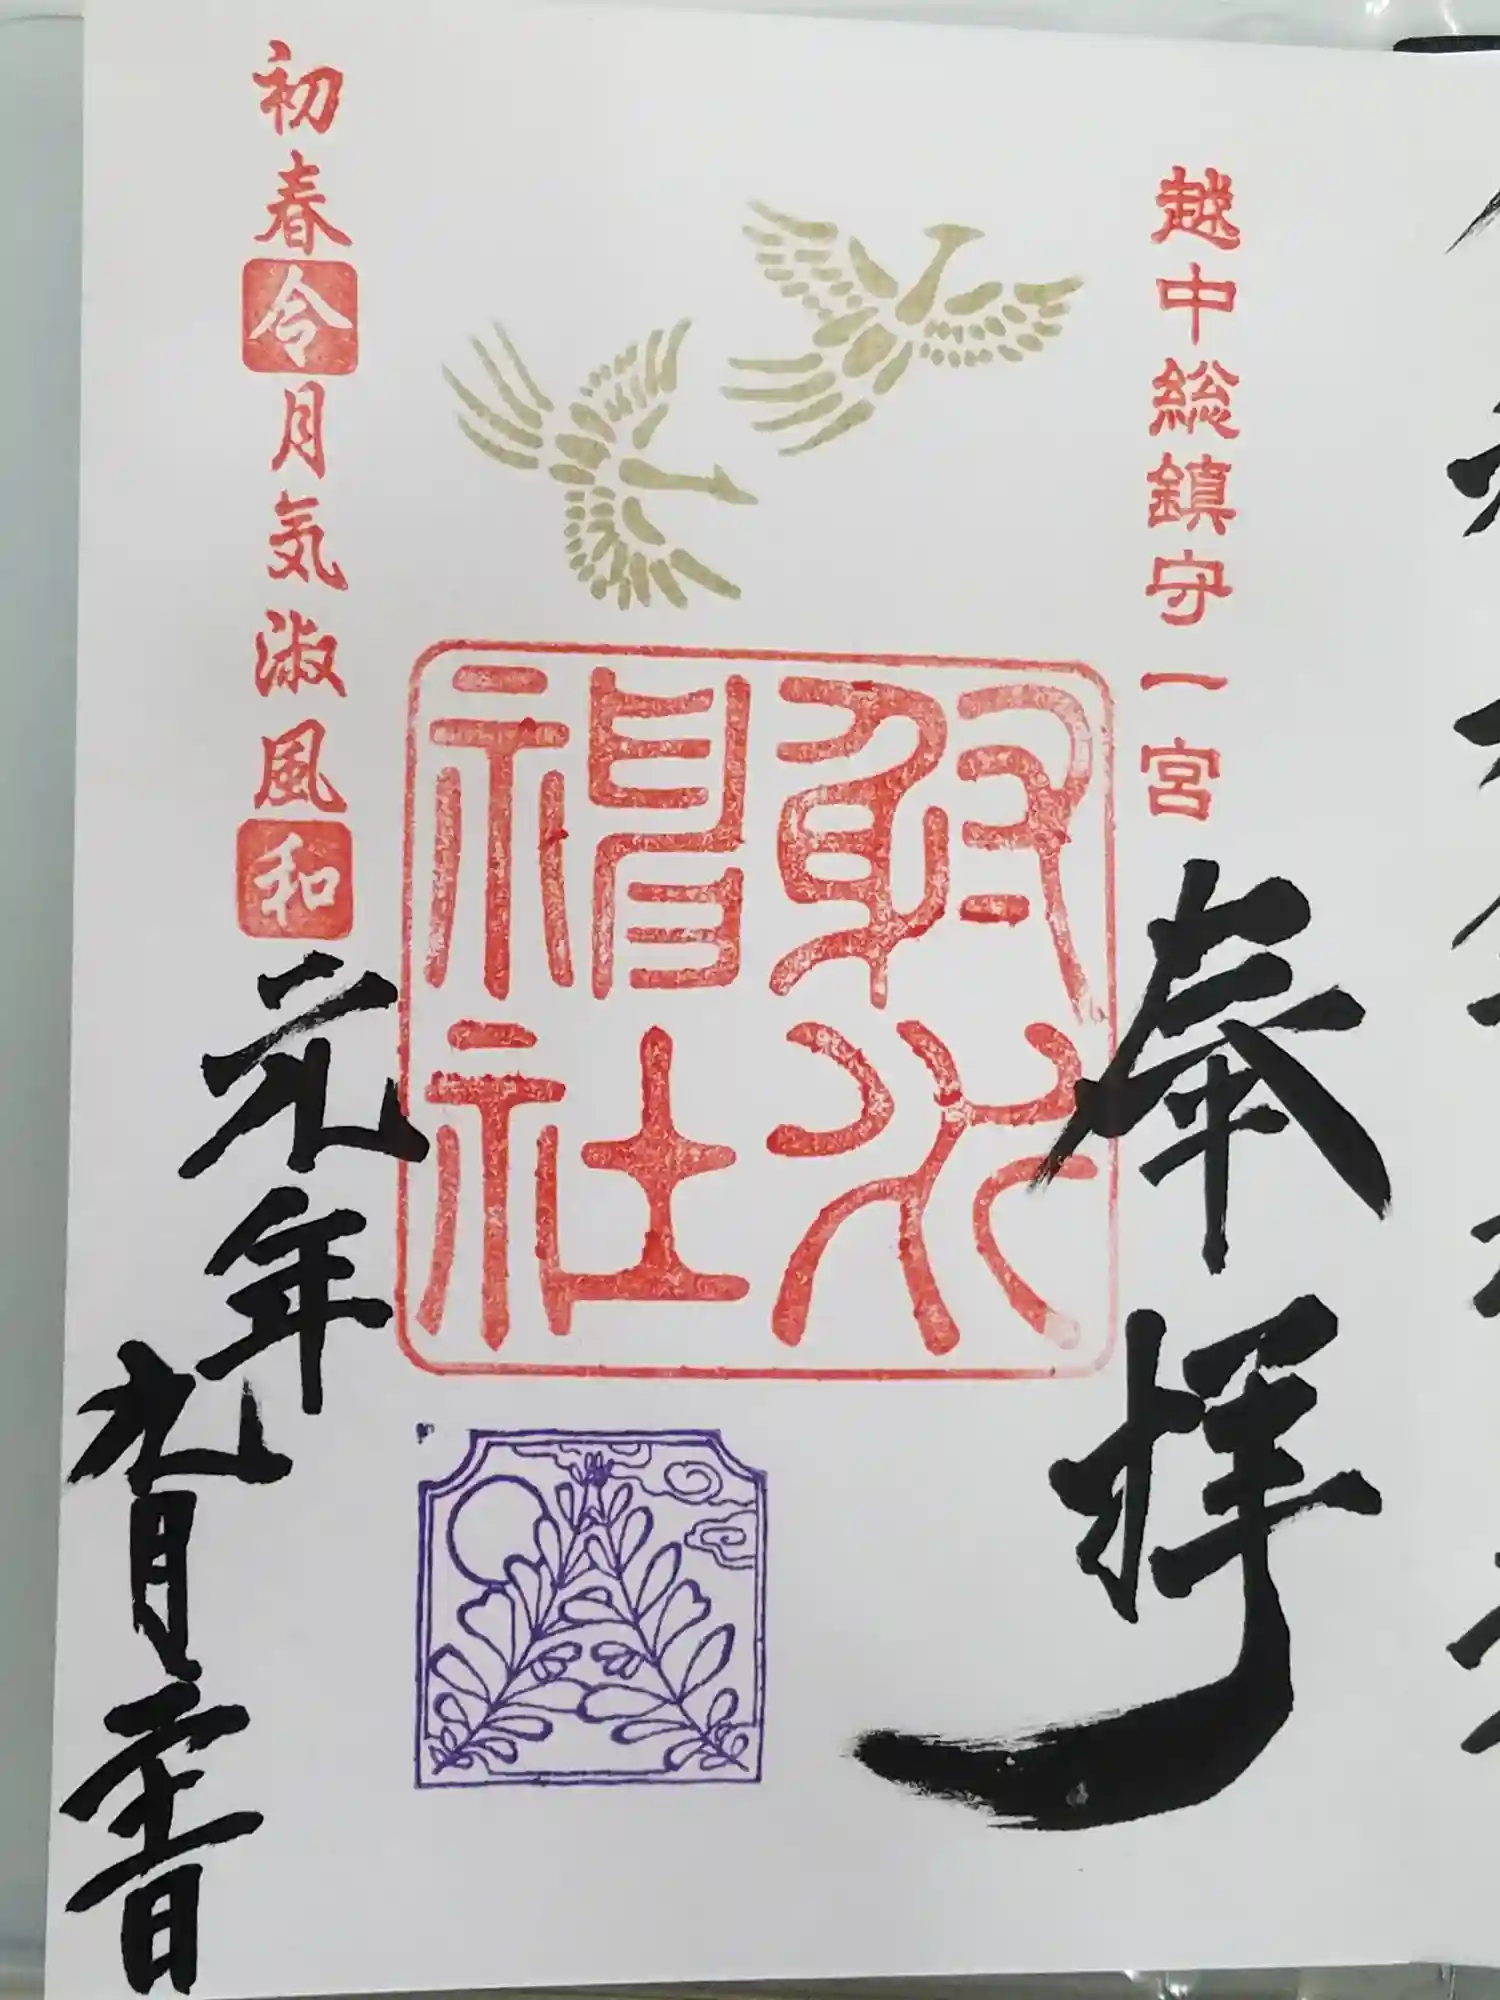 越中総鎮守一宮
奉拝
射水神社
初春令月気淑風和
元年
九月